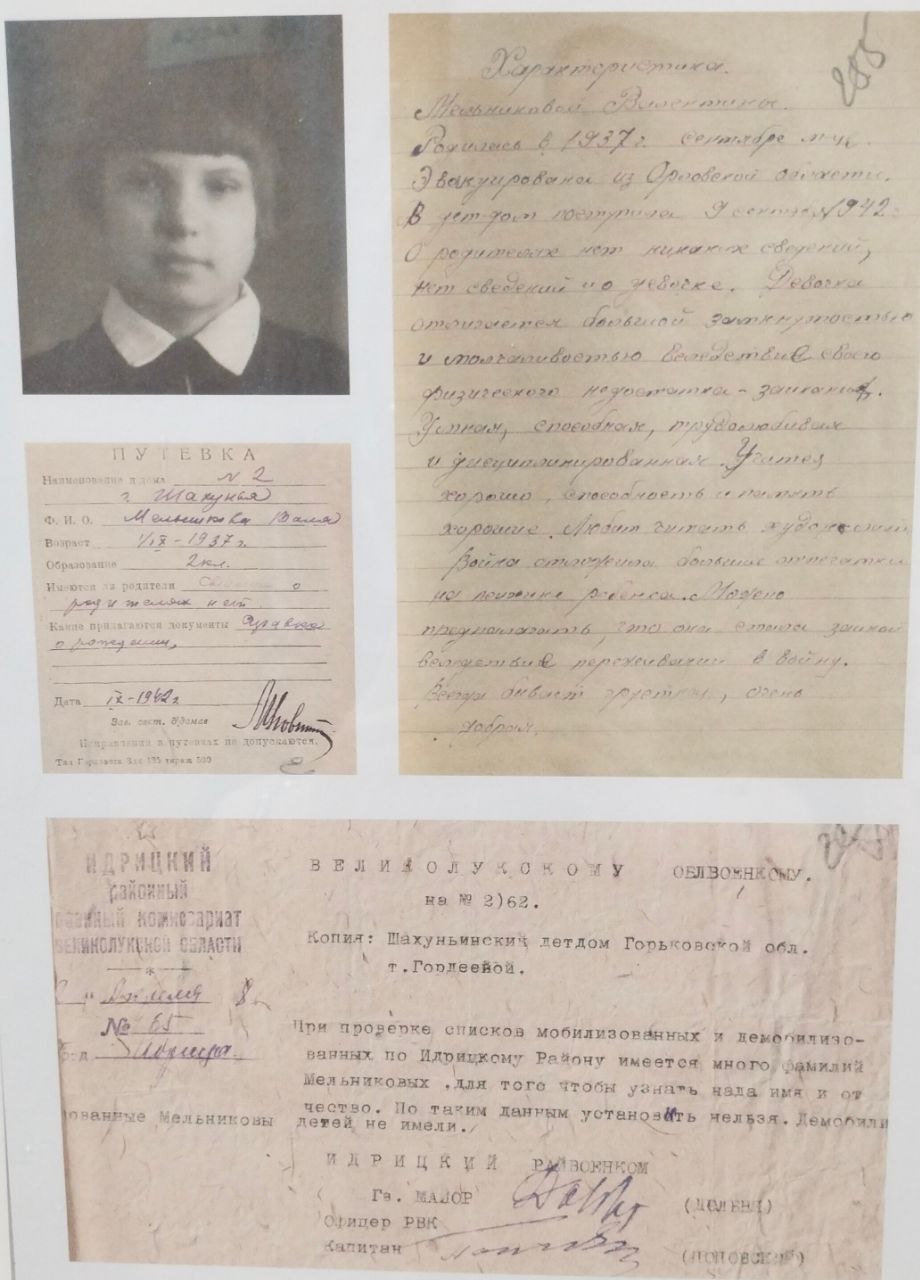 Характеристика.
285
Мельниковой Валентины.
Родилась в 1937 г. сентябре м-це.
Эвакуирована из Орловской области.
В дет-дом поступила 9 сентября 1942 г.
О родителях нет никаких сведений,
нет сведений и о девочке. Девочка
отличается большой замкнутостью
и молчаливостью вследствие своего
физического недостатка - заикания.
Умная, способная, трудолюбивая
и дисциплинированная. Учится
хорошо, способность и память
хорошие. Любит читать
Война отложила большие отпечатки
на психике ребенка. Можно
предполагать, что она стала заикой
вследствие переживаний в войну.
Всегда бывает грустная, очень
добрая.
ПУТЕВКА
Наименование д дома № 2
г. Шахунья
Ф. И. О. Мельникова Валя
Возраст 1/IX - 1937 г.
Образование 2 кл.
Имеются ли родители о
родителях нет.
Какие прилагаются документы Справка
о рождении,
Дата IX-1942 г
Зав. сект. д/домов
Исправления в путевках не допускаются.
тираж 500
ИДРИЦКИЙ
районный
военный комиссариат
ВЕЛИКОЛУКСКОЙ ОБЛАСТИ
№ 65
ВЕЛИКОЛУКСКОМУ ОБЛВОЕНКОМУ.
на № 2)62.
Копия: Шахуньинский детдом Горьковской обл.
т.Гордеевой.
При проверке списков мобилизованных и демобилизо-
ванных по Идрицкому Району имеется много фамилий
Мельниковых ,для того чтобы узнать нада имя и от
чество. По таким данным установить нельзя. Демобили
зованные Мельниковы детей не имели.
ИДРИЦКИЙ РАЙВОЕНКОМ
Гв. МАЙОР
Офицер РВК
Капитан